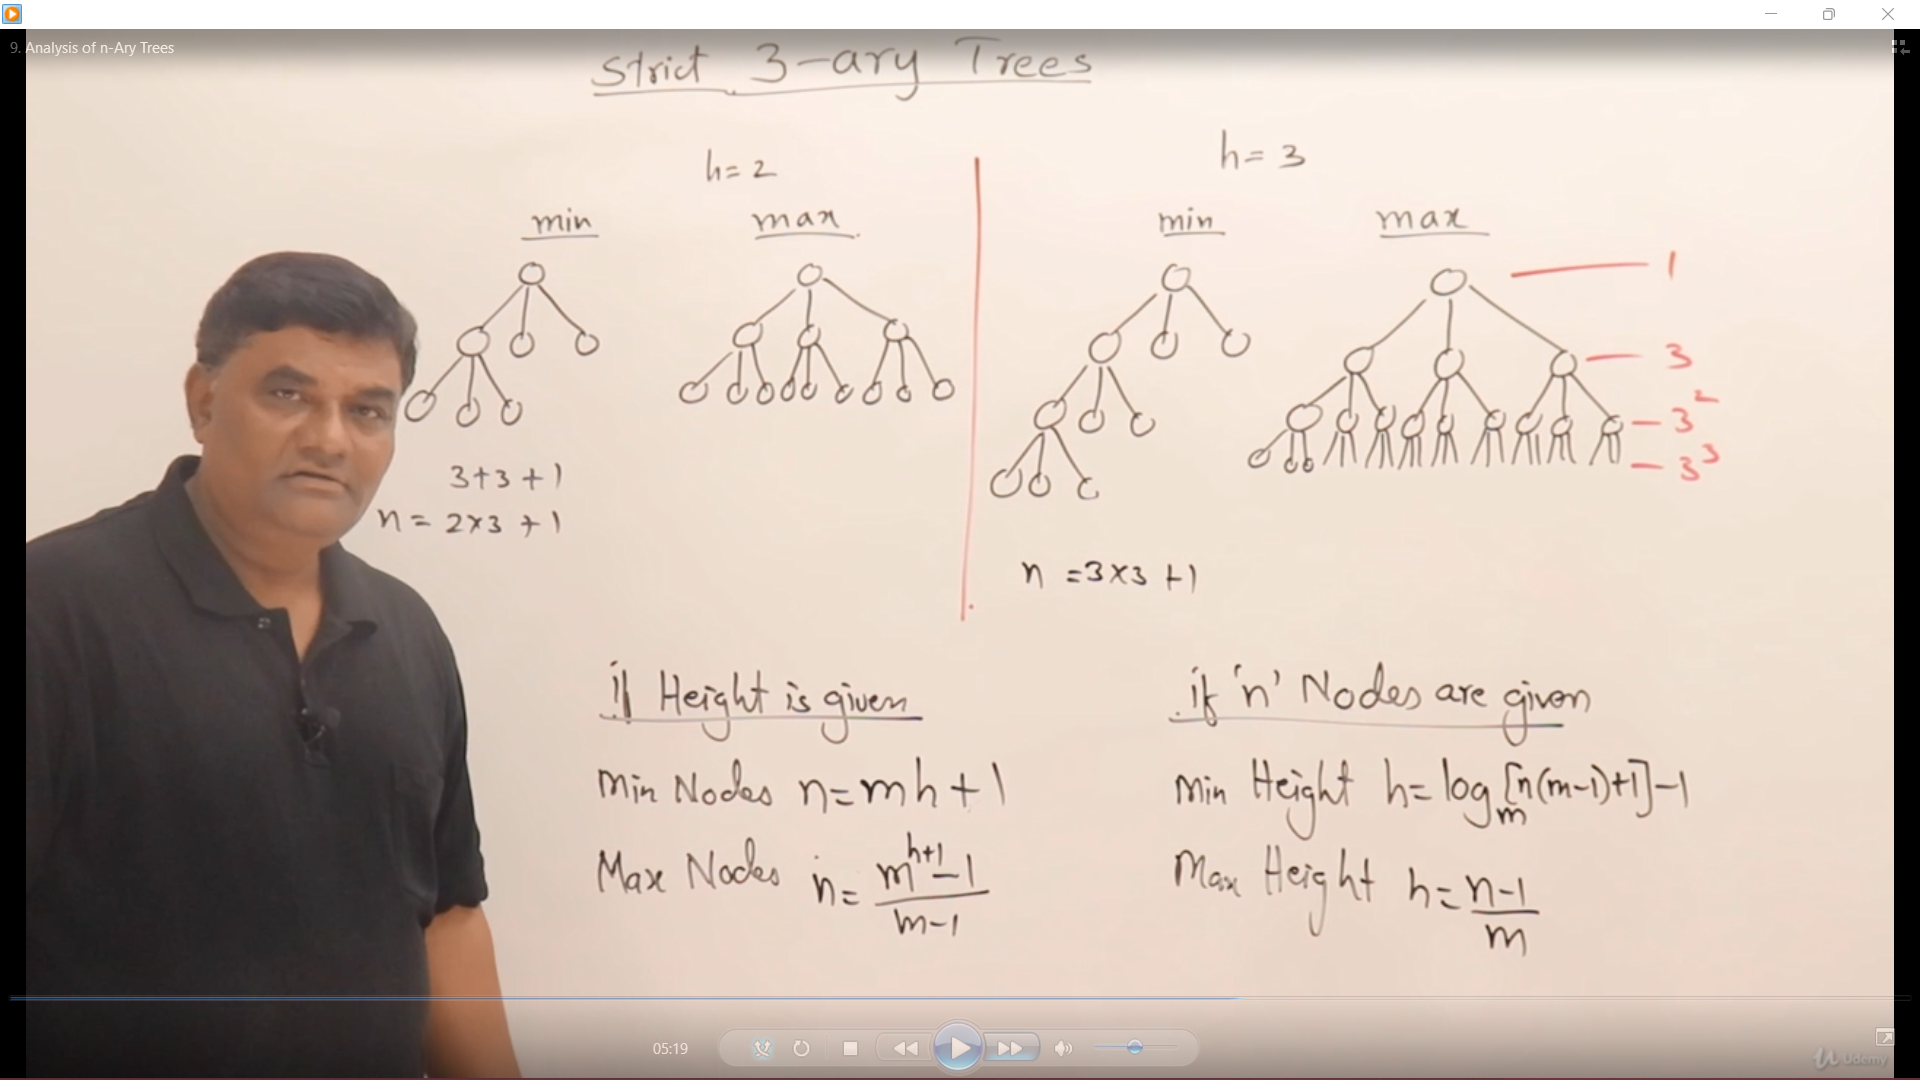 9. Analysis of n-Ary Trees
Strict 3-ary Trees
h= 2
min
max
3+3 +1
n = 2×3 +1
h= 3
min
max
1
3
3²
3³
n =3×3 +1
if Height is given
Min Nodes n=mh+1
Max Nodes n= m^(h+1)-1
m-1
if 'n' Nodes are given
Min Height h= log_m [n(m-1)+1]-1
Max Height h= n-1
m
05:19
Udemy